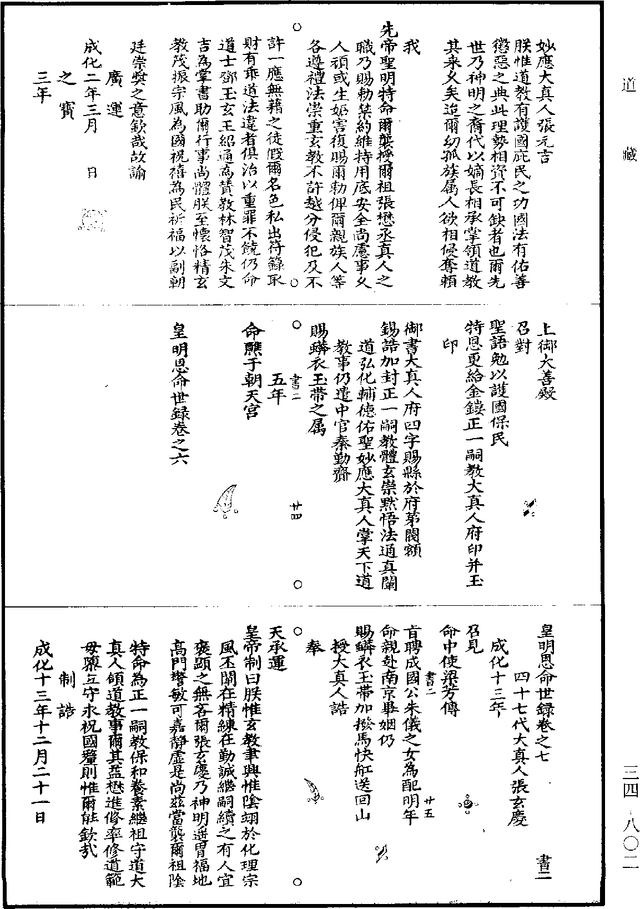 道藏
妙應大真人張元吉
朕惟道教有護國庇民之功國法有佑善
懲惡之典此理勢相資不可缺者也爾先
世乃神明之裔代以嫡長相承掌領道教
其來久矣迨爾幼孤族屬人欲相侵奪賴
我
先帝聖明特命爾襲授爾祖張懋丞真人之
職乃賜勅禁約維持用底安全尚慮事久
人頑或生姤害復賜勅俾爾親族人等
各遵禮法崇重玄教不許越分侵犯及不
許一應無藉之徒假爾名色私出符籙取
財有乖道法違者俱治以重罪不饒仍命
道士鄧玉玄王紹通高賛教林智茂朱文
吉為掌書助爾行事尚體朕至懷恪精玄
教茂振宗風為國祝禧為民祈福以副朝
廷崇奬之意欽哉故諭
廣運
成化二年三月　日
之寶
三年
上御大善殿
召對
聖語勉以護國保民
特恩更給金鏤正一嗣教大真人府印并玉
印
御書大真人府四字賜縣於府第閣額
錫誥加封正一嗣教體玄崇默悟法通真闡
道弘化輔德佑聖妙應大真人掌天下道
教事仍遣中官秦勤齎
賜蟒衣玉帶之属
書二　廿四
五年
命醮于朝天宮
皇明恩命世録卷之六
皇明恩命世録卷之七　書二
四十七代大真人張玄慶
成化十三年
召見
命中使梁芳傳
書二　廿五
旨聘成國公朱儀之女為配明年
命親赴南京畢姻仍
賜蟒衣玉帶加撥馬快舡送回山
授大真人誥
奉
天承運
皇帝制曰朕惟玄教聿興惟陰翊於化理宗
風丕闡在精練在勤誠繼嗣續之有人宜
褒顯之無吝爾張玄慶乃神明遥胄福地
高門警敏可嘉靜虛是尚茲當襲爾祖陰
特命為正一嗣教保和養素繼祖守道大
真人領道教事爾其益懋進修率修道範
毋隳互守永祝國釐則惟爾能欽哉
制誥
成化十三年十二月二十一日
三四　八〇二